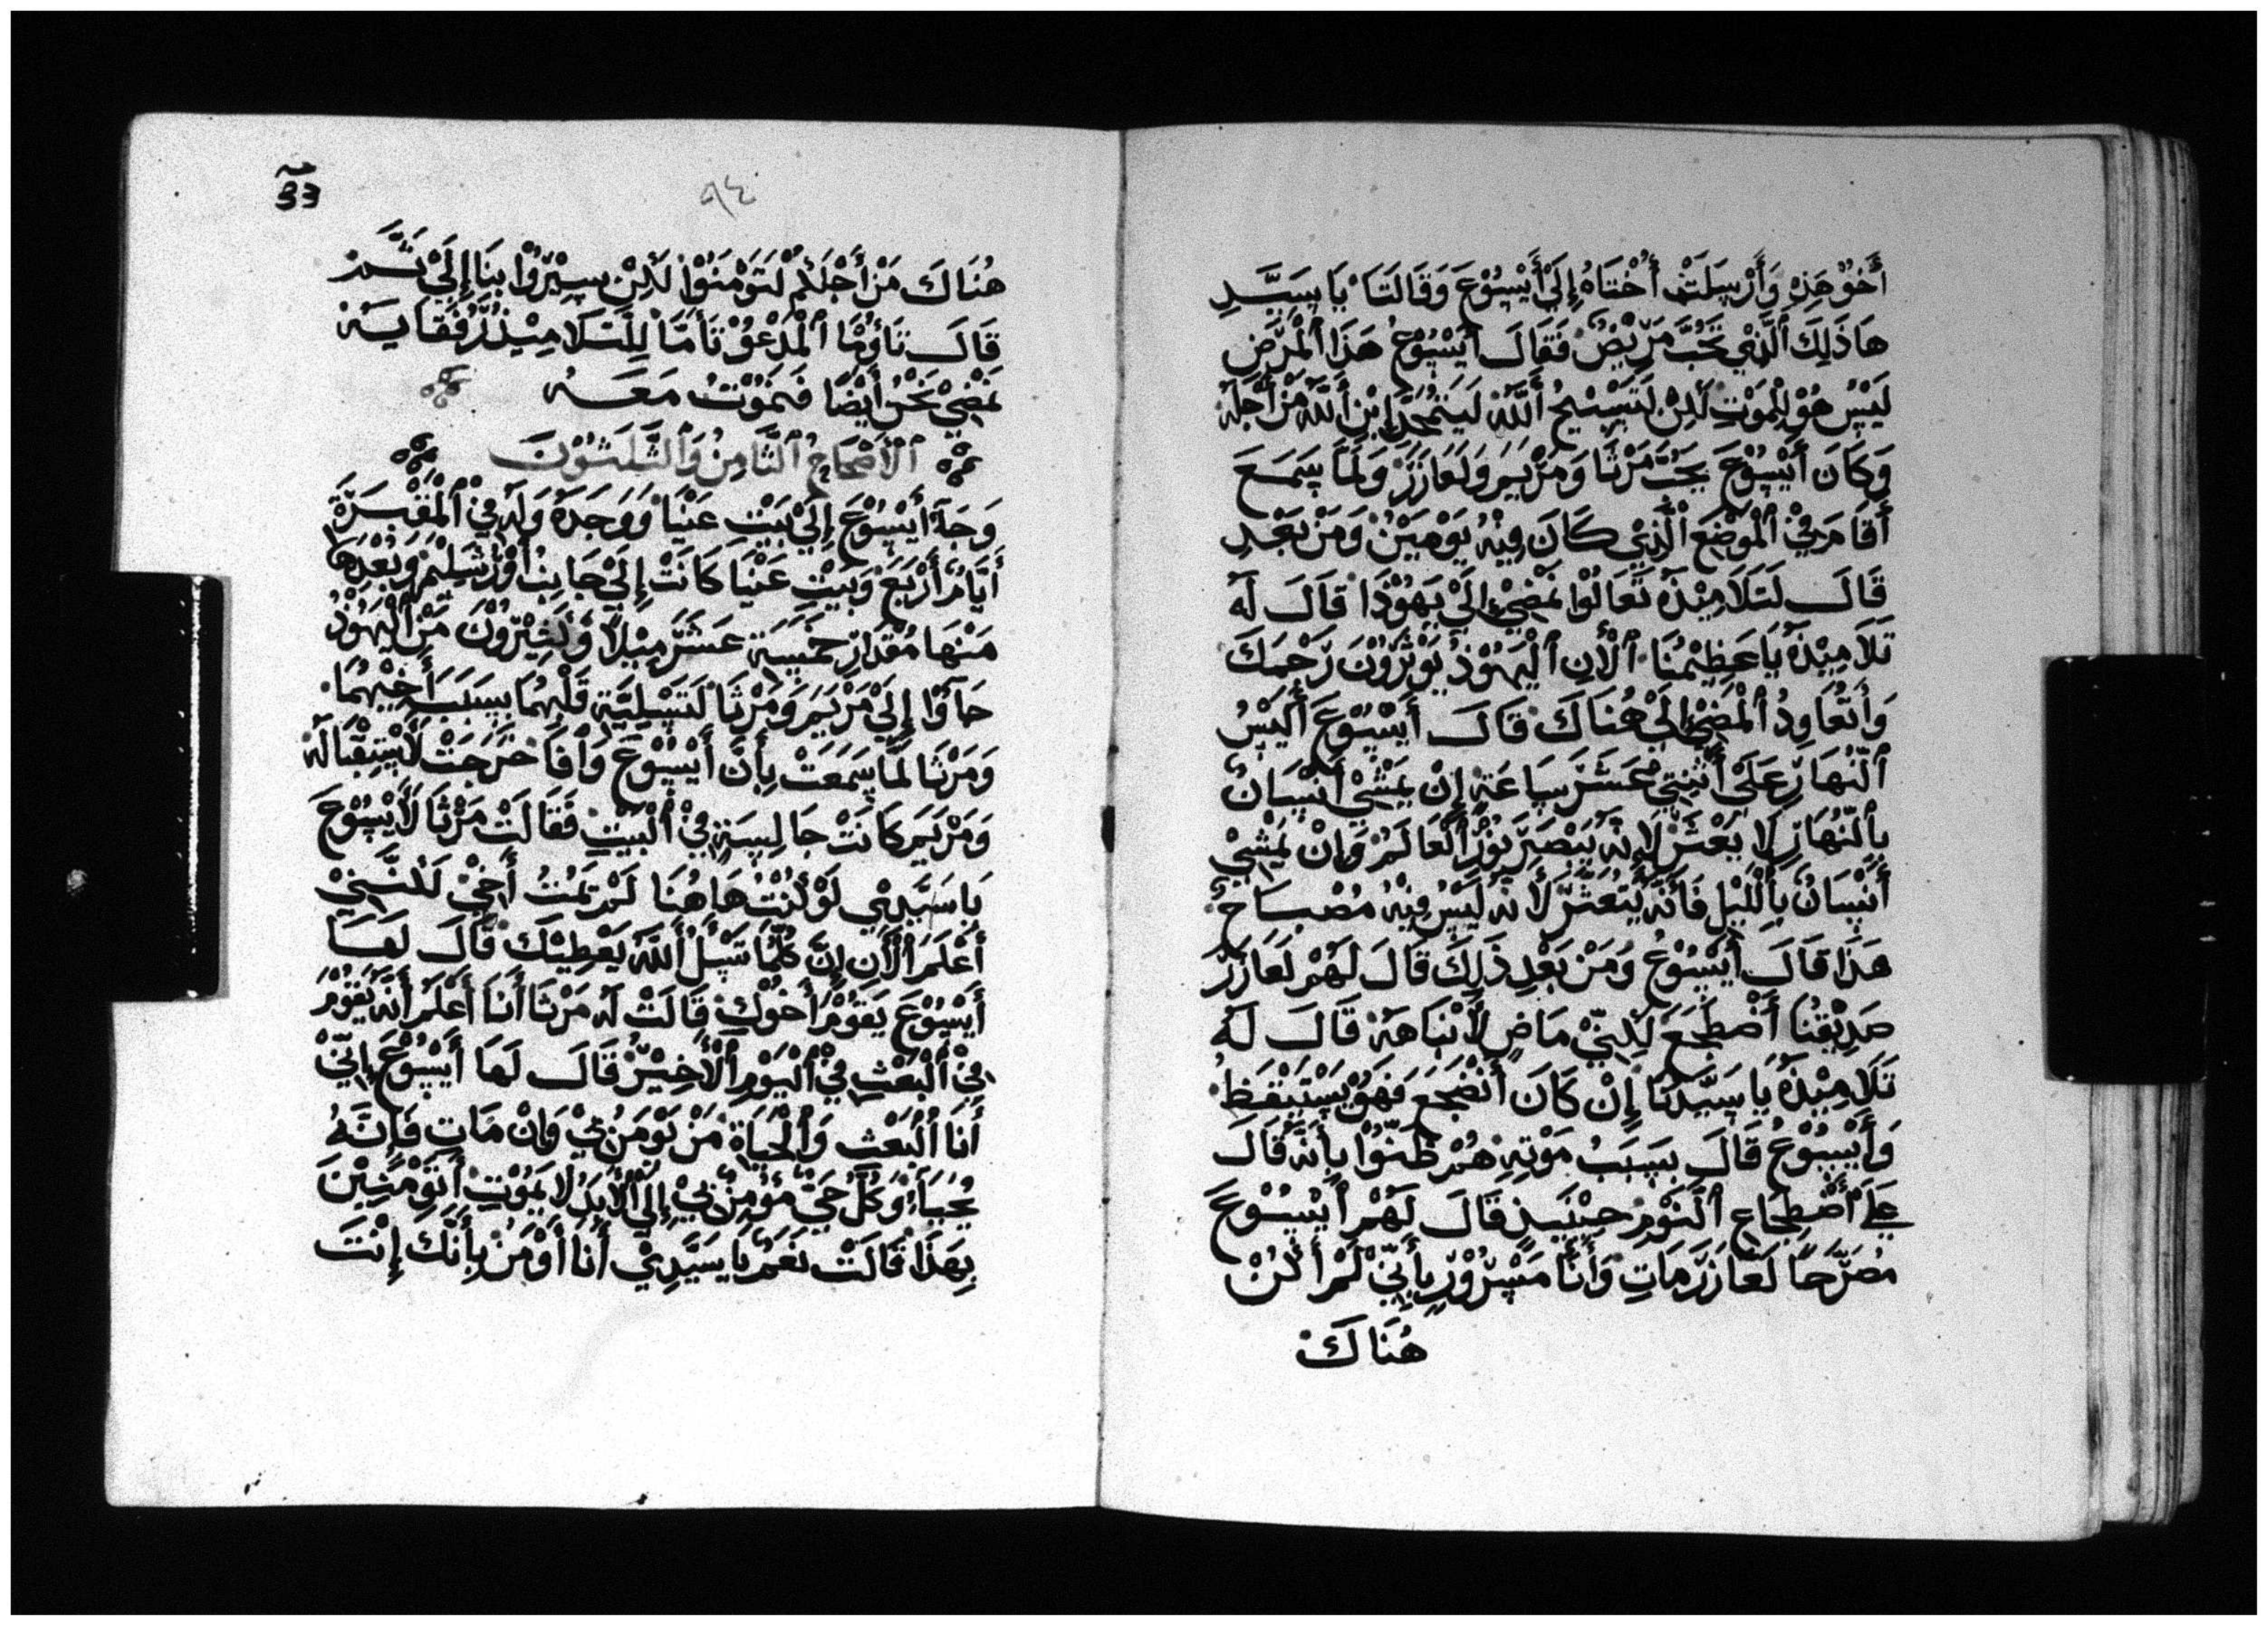 أَخُوْ هَذِهِ وَأَرْسَلَتْ أُخْتَاهُ إِلَيْ أَيْسُوْعَ وَقَالَتَا يَا سَيَّدِ
هَا ذَلِكَ ٱلَّذِيْ تَحُبَّ مَرِيْضٌ فَقَالَ أَيْسُوْعُ هَذَا ٱلْمَرَضِ
لَيْسَ هُوْ لِلْمَوْتِ لَكِنْ لَتَسْبِيْحُ أَللَّهْ لَيَتَمَجَّدَ إِبْنِ أَللَّهْ مَنْ أَجْلَهْ
وَكَانَ أَيْسُوْعَ يَحُبَّ مَرْثَا وَمَرْيَمَ وَلَعَازَرَ وَلَمَّا سَمَعَ
أَقَامَ فِيْ ٱلْمَوْضِعَ ٱلَّذِيْ كَانَ فِيْهْ يَوْمَيْنِ وَمَنْ بَعْدِ
قَالَ لَتَلَامِيْذَهْ تَعَالُوْا نَمْضِيْ إِلَيْ يَهُوْذَا قَالَ لَهُ
تَلَامِيْذَهْ يَا عَظِيْمُنَا ٱلْأَنِ ٱلْيَهُوْذُ يُوْثَرُوْنَ رَجْمَكَ
وَأَتُعَاوِدُ ٱلْمَضِيْ إِلَيْ هُنَاكَ قَالَ أَيْسُوْعَ أَلَيْسُ
ٱلنَّهَارِ عَلَيْ أَثْنَتِيْ عَشَرَ سَاعَةْ إِنْ يَمْشِيْ أَنْسَانٌ
بِٱلنَّهَارِ لَا يَعْثَرْ لَإِنَهْ يَبْصَرَ نُوْرُ ٱلْعَالَمْ وَإِنْ يَمْشِيْ
أَنْسَانٌ بِٱللَّيْلِ فَأَنَّهْ يَتَعَثَّرَ لَأَنَهْ لَيْسُ فِيْهْ مُصْبَاحٍ
هَذَا قَالَ أَيْسُوْعُ وَمَنْ بَعْدِ ذَلِكَ قَالَ لَهُمْ لَعَازَرَ
صَدِيْقُنَا أَضْطَجَعَ لَكِنِّيْ مَاضٍ لَأَنْبَاهَهْ قَالَ لَهُ
تَلَامِيْذَهْ يَا سَيَّدَنَا إِنْ كَانَ أَنْضَجَعَ فَهَوْ يَسْتَيْقَظُ
وَأَيْسُوْعُ قَالَ بِسَبَبُ مَوْتِهْ هُمْ ظَنُّوْا بِأَنَهْ قَالَ
عَلَي أَضْطِجَاعِ ٱلنَّوْمِ حِيْنَيْذٍ قَالَ لَهُمْ أَيْسُوْعَ
مُصَرَّحًا لَعَازَرَ مَاتِ وَأَنَا مَسْرُوْرٌ بِأَنِّيْ لَمْ أَكُنْ
هُنَاكَ
33
٩٤
هُنَاكَ مَنْ أَجْلَكُمْ لَتُوْمَنُوْا لَكِنْ سِيْرُوْا بِنَا إِلَيْ ثَمَّ
قَالَ تَاؤُمَا ٱلْمَدْعُوْ تَأَمَّا لِلتَّلَامِيْذِ رُفَقَايَهْ
نَمْضِيْ نَحْنُ أَيْضًا فَنَمُوْتُ مَعَهُ
ٱلْأَصْحَاحُ ٱلثَّامِنُ وَٱلثَّلَثُوْنَ
وَجَآءَ أَيْسُوْعَ إِلَيْ بَيْتِ عَنْيَا وَوَجَدَهْ وَلَهْ فِيْ ٱلْمَقْبَرَةْ
أَيَّامٌ أَرْبَعَ وَبَيْتِ عَنْيَا كَانَتْ إِلَيْ جَانِبُ أَوْرُشَلِيْمْ وَبُعْدُهَا
مَنْهَا مُقْدَارِ خَمْسَةَ عَشَرَ مِيْلًا وَكَثِيْرُوْنَ مَنْ ٱلْيَهُوْذُ
جَآؤُا إِلَيْ مَرْيَمَ وَمَرْثَا لَتَسْلِيَةِ قَلْبِهُمَا بِسَبَبَ أَخِيْهُمَا
وَمَرْثَا لَمَّا سَمَعَتْ بِأَنَّ أَيْسُوْعَ وَافَا خَرَجَتْ لَأَسْتِقْبَالَهْ
وَمَرْيَمَ كَانَتْ جَالِسَةٍ فِيْ ٱلْبَيْتِ فَقَالَتْ مَرْثَا لَأَيْسُوْعَ
يَا سَيَّدِيْ لَوْ كُنْتُ هَاهُنَا لَمْ يَمُتْ أَخِيْ لَكِنَّنِيْ
أَعْلَمَ ٱلْأَنِ إِنَّ كُلَّمَا تَسْلُ أَللَّهْ يَعْطِيْكَ قَالَ لَهَا
أَيْسُوْعَ يَقُوْمُ أَخُوْكِ قَالَتْ لَهُ مَرْثَا أَنَا أَعْلَمُ أَنَّهْ يَقُوْمَ
فِيْ ٱلْبَعْثِ فِيْ ٱلْيَوْمِ ٱلْأَخِيْرُ قَالَ لَهَا أَيْسُوْعَ إِنِّيْ
أَنَا ٱلْبَعْثِ وَٱلْحَيَاةِ مَنْ يُوْمَنُ بِيْ وَإِنْ مَاتِ فَإِنَّهُ
يُحْيَاءُ وَكُلَّ حَيٍّ مُؤْمِنٌ بِيْ إِلَيْ ٱلْأَبَدْ لَا يَمُوْتِ أَتُوْمَنِيْنَ
بِهَذَا قَالَتْ نَعَمْ يَا سَيَّدِيْ أَنَا أُوْمَنْ بِأَنَّكَ إِنْتَ